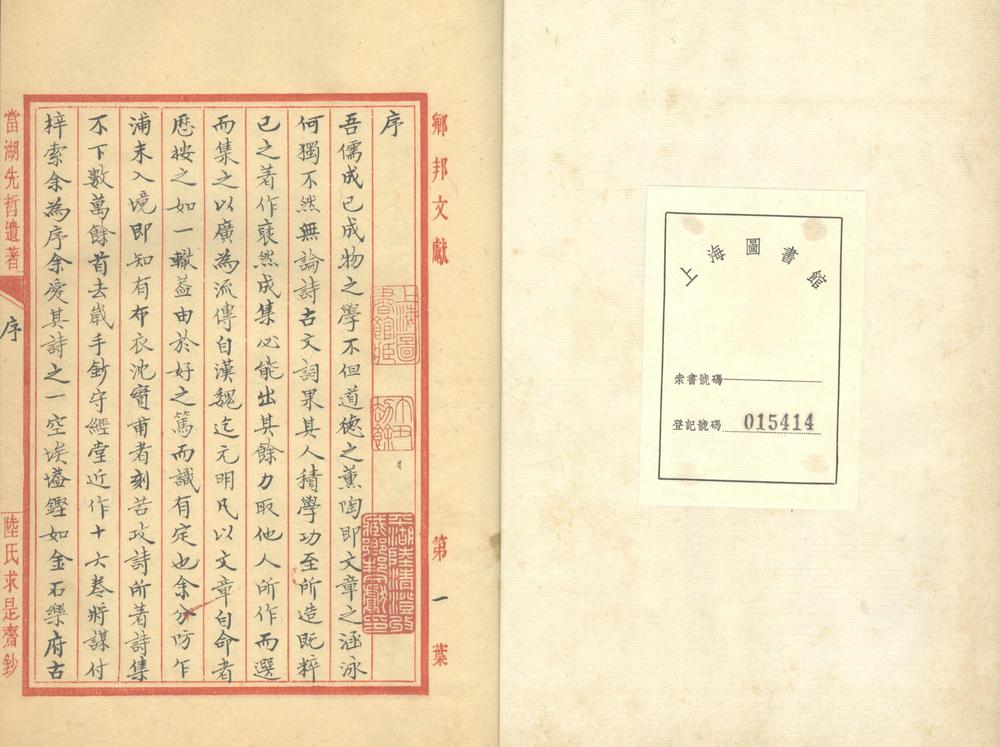 上海圖書館
索書號碼
登記號碼 015414
鄉邦文獻 第一葉
序
上海圖書館藏
吾儒成已成物之學不但道德之薰陶即文章之涵泳
何獨不然無論詩古文詞果其人積學功至所造既粹
已之著作裒然成集必能出其餘力取他人所作而選
而集之以廣為流傳自漢魏迄元明凡以文章自命者
歷按之如一轍蓋由於好之篤而識有定也余分防乍
浦未入境即知有布衣沈實甫者刻苦攻詩所著詩集
不下數萬餘首去歲手鈔守經堂近作十六卷將謀付
梓索余為序余愛其詩之一空埃壒鏗如金石樂府古
當湖先哲遺著 序 陸氏求是齋鈔